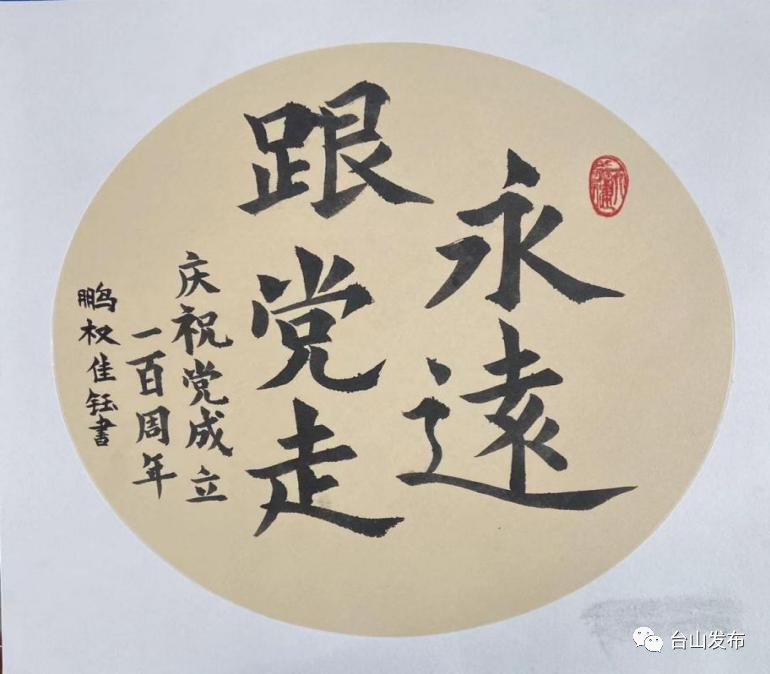 永遠
跟党走
庆祝党成立
一百周年
鹏权佳钰書
台山发布